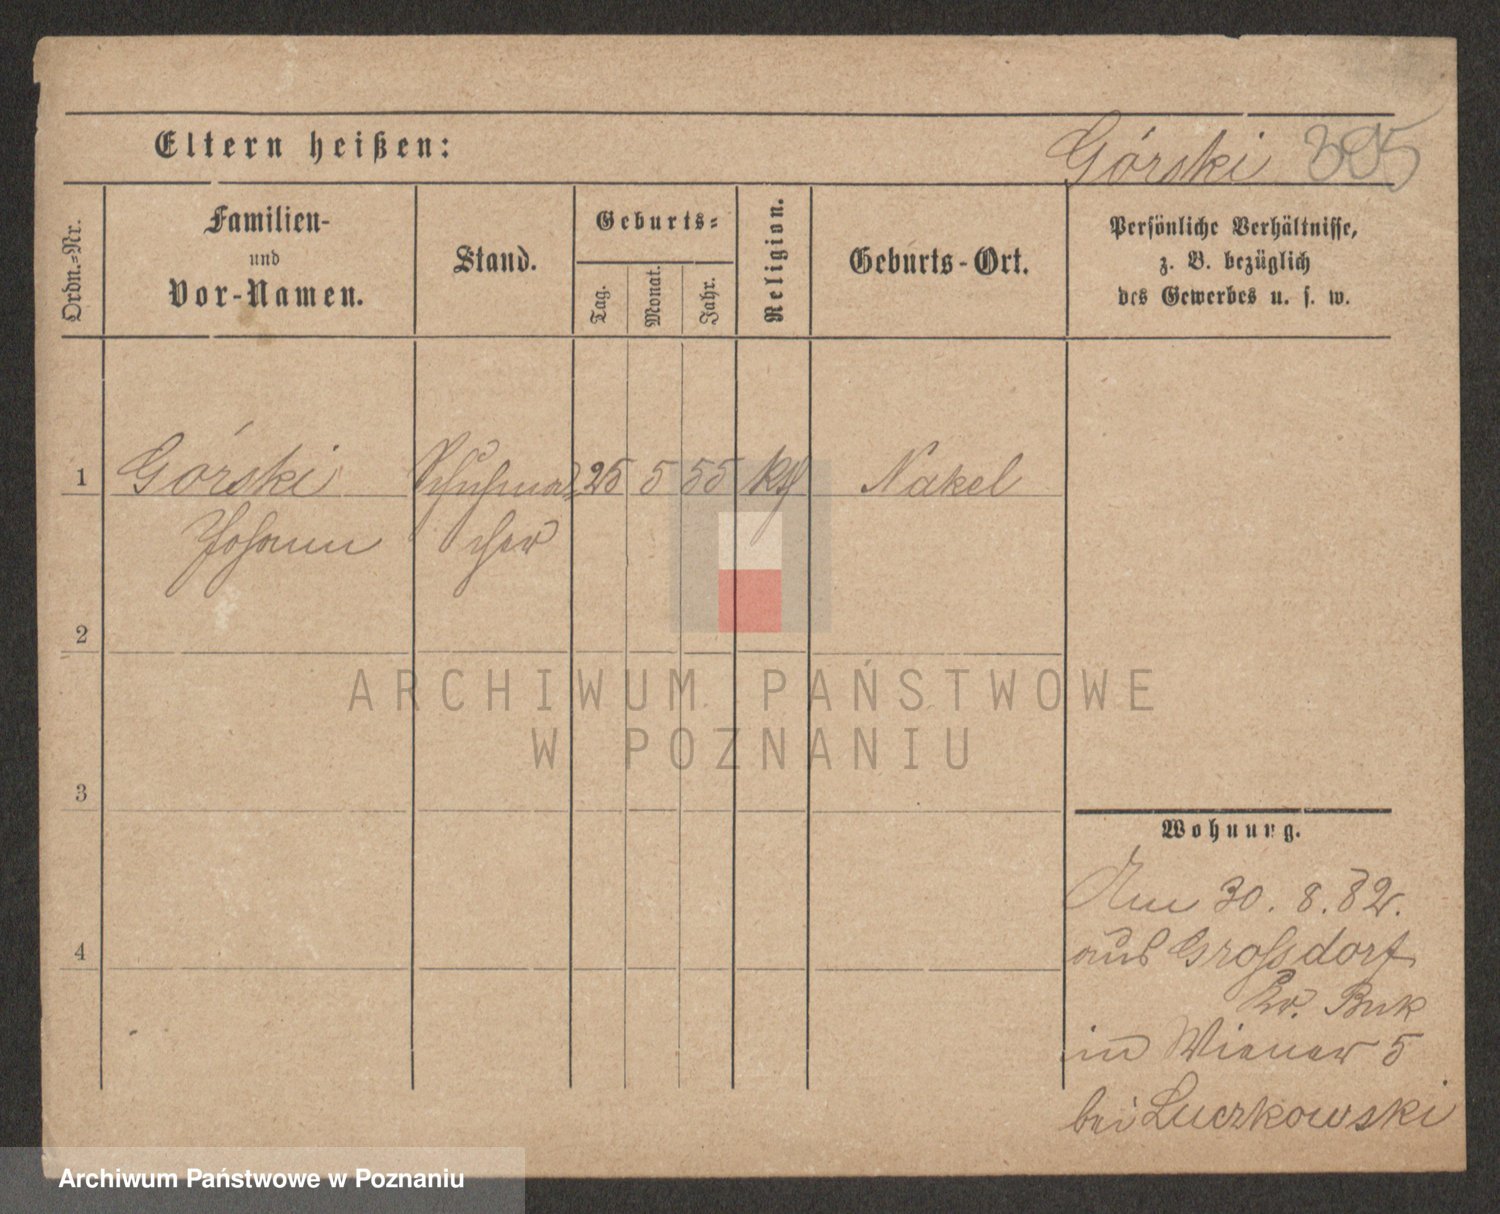 Eltern heißen:
Górski 395
Ordn.-Nr.
Familien-
und
Vor-Namen.
Stand.
Geburts-
Tag.
Monat.
Jahr.
Religion.
Geburts-Ort.
Persönliche Verhältnisse,
z. B. bezüglich
des Gewerbes u. s. w.
1 Górski Schuhma- 25 5 55 kth Nakel
Johann cher
2
3
4
Wohnung.
Am 30. 8. 82.
aus Grossdorf
Kr. Buk
in Wiener 5
bei Luczkowski
ARCHIWUM PAŃSTWOWE
W POZNANIU
Archiwum Państwowe w Poznaniu